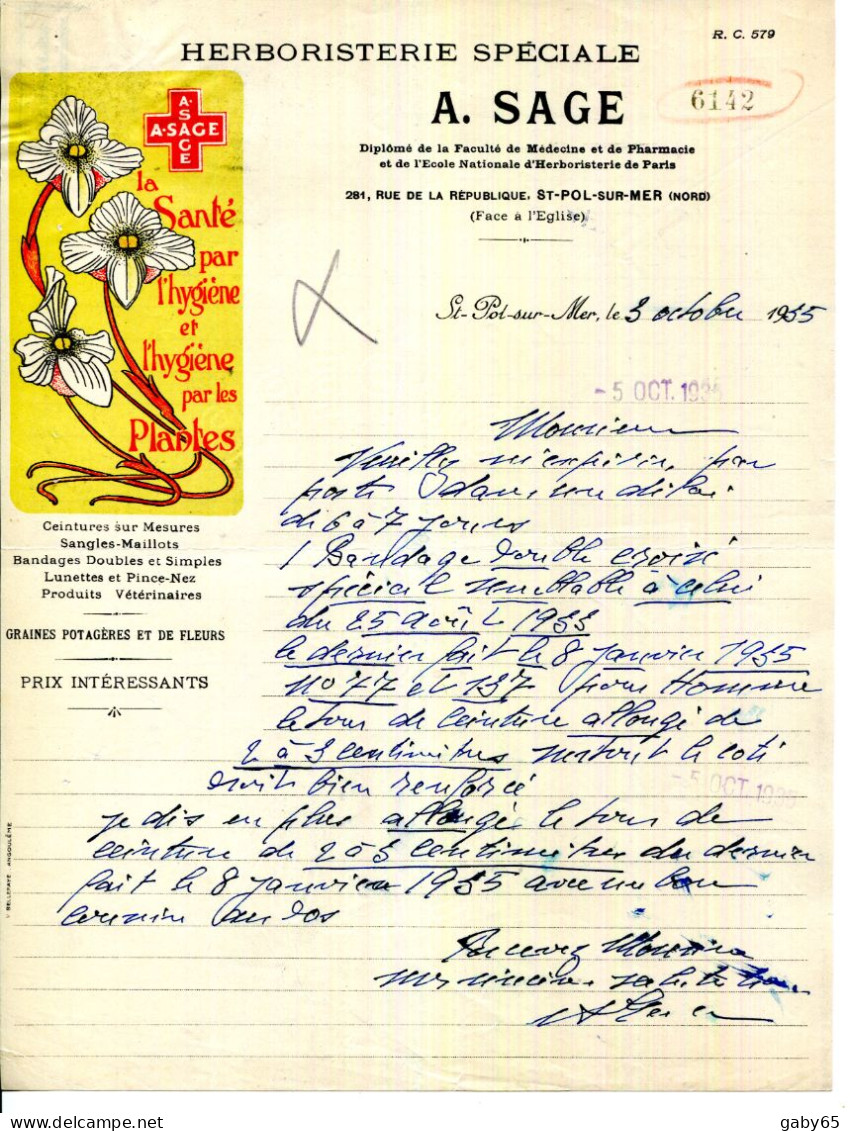 R. C. 579
HERBORISTERIE SPÉCIALE
A. SAGE
6142
Diplômé de la Faculté de Médecine et de Pharmacie
et de l'Ecole Nationale d'Herboristerie de Paris
281, RUE DE LA RÉPUBLIQUE, ST-POL-SUR-MER (NORD)
(Face à l'Eglise)
A·SAGE
A·SAGE
la
Santé
par
l'hygiène
et
l'hygiène
par les
Plantes
Ceintures sur Mesures
Sangles-Maillots
Bandages Doubles et Simples
Lunettes et Pince-Nez
Produits Vétérinaires
GRAINES POTAGÈRES ET DE FLEURS
PRIX INTÉRESSANTS
St-Pol-sur-Mer, le 3 octobre 1935
- 5 OCT. 1935
Monsieur
Veuillez m'expédier, par
poste dans un délai
de 6 à 7 jours
1 Bandage double croisé
spécial semblable à celui
du 25 août 1933
le dernier fait le 8 janvier 1935
no 77 et 137 pour Homme
le tour de ceinture allongé de
2 à 3 centimètres surtout le coté
droit bien renforcé
- 5 OCT. 1935
je dis en plus allongé le tour de
ceinture de 2 à 3 centimètres du dernier
fait le 8 janvier 1935 avec un bon
coussin au dos
Recevez Monsieur
mes sincères salutations
A Sage
V BELLEFAYE ANGOULÊME
gaby65